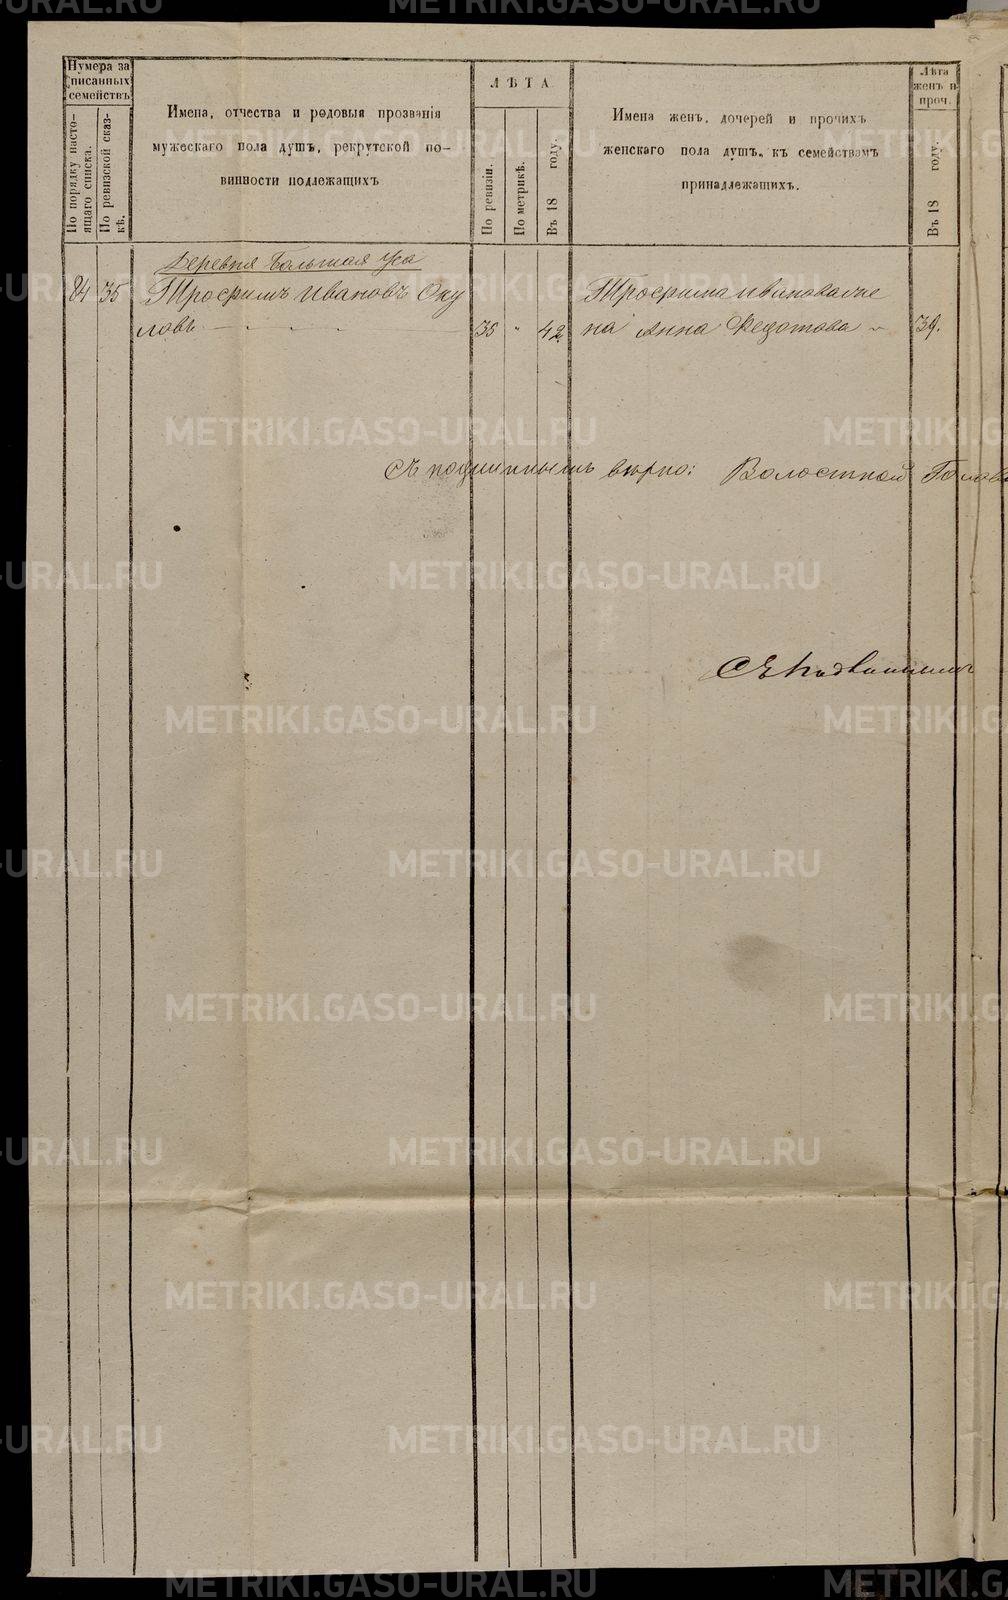 Нумера за
писанныхъ
семействъ
По порядку насто-
ящаго списка.
По ревизской сказ-
кѣ.
Имена, отчества и родовыя прозванія
мужескаго пола душъ, рекрутской по-
винности подлежащихъ
ЛѢТА
По ревизіи.
По метрикѣ.
Въ 18 году.
Имена женъ, дочерей и прочихъ
женскаго пола душъ, къ семействамъ
принадлежащихъ.
Лѣта
женъ и
проч.
Въ 18 году.
Деревня Большая Уса
84 35 Трофимъ Ивановъ Оку
ловъ 35 " 42
Трофима Иванова же
на Анна Федотова 39.
Съ подлиннымъ вѣрно: Волостной Голова
Съ подлиннымъ
METRIKI.GASO-URAL.RU